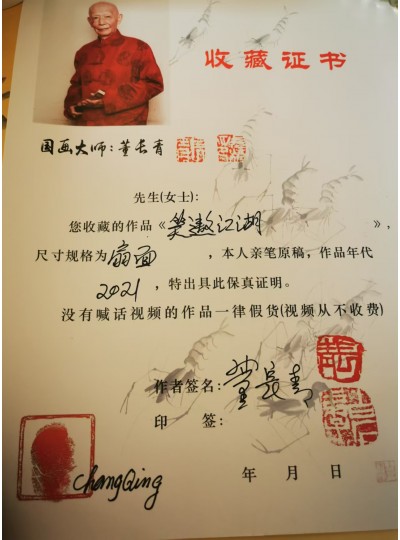 收藏证书
国画大师:董长青
先生(女士):
您收藏的作品《笑遨江湖》,
尺寸规格为扇面,本人亲笔原稿,作品年代
2021,特出具此保真证明。
没有喊话视频的作品一律假货(视频从不收费)
作者签名:董长青
印 签:
ChangQing
年 月 日